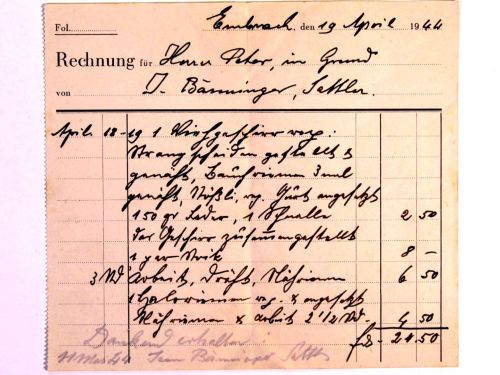 Fol. Embrach, den 19 April 1944
Rechnung für Herrn Peter, in Grund
von J. Bänninger, Sattler.
April 18-19 1 Viehgeschirr rep:
Strangscheiden gestellt &
genäht, Bauchriemen 3 mal
genäht, rep. Gurt angesetzt
150 gr Leder, 1 Schnalle 2 50
das Geschirr zusammengestellt
1 per Strik 8 –
3 Std Arbeit, Dräht, Nähriemen 6 50
1 Halsriemen rep. & angesetzt
Nähriemen & Arbeit 2 1/2 Std - 4 50
frs - 21 50
Dankend erhalten
11 Mai 44 Jean Bänninger Sattler